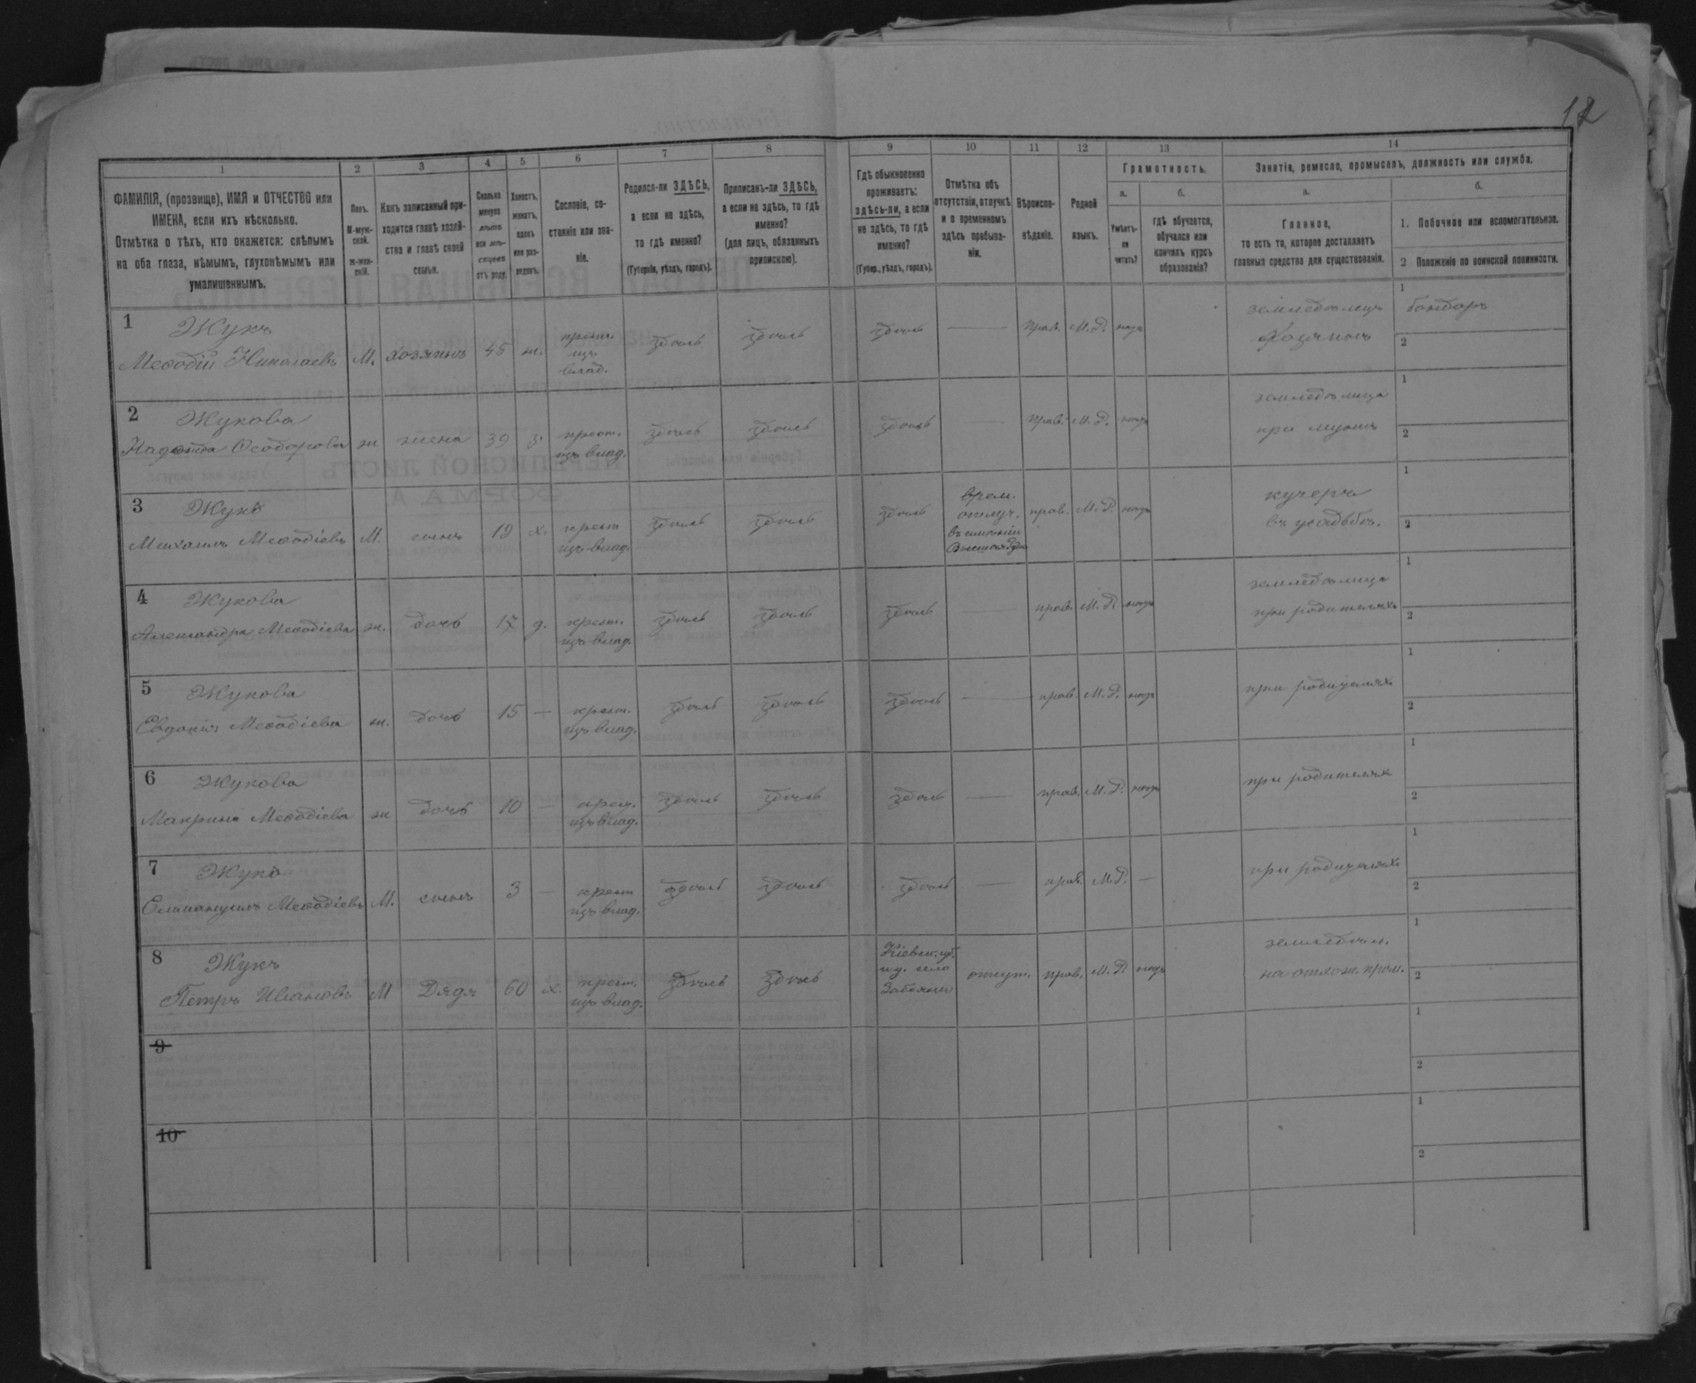 12
1 2 3 4 5 6 7 8 9 10 11 12 13 14
ФАМИЛІЯ, (прозвище), ИМЯ и ОТЧЕСТВО или
ИМЕНА, если ихъ нѣсколько.
Отмѣтка о тѣхъ, кто окажется: слѣпымъ
на оба глаза, нѣмымъ, глухонѣмымъ или
умалишеннымъ.
Полъ.
М-муж-
ской.
Ж-жен-
скій.
Какъ записанный при-
ходится главѣ хозяй-
ства и главѣ своей
семьи.
Сколько
минуло
лѣтъ
или мѣ-
сяцевъ
отъ роду.
Холостъ,
женатъ,
вдовъ
или раз-
веденъ.
Сословіе, со-
стояніе или зва-
ніе.
Родился-ли ЗДѢСЬ,
а если не здѣсь,
то гдѣ именно?
(Губернія, уѣздъ, городъ).
Приписанъ-ли ЗДѢСЬ,
а если не здѣсь, то гдѣ
именно?
(для лицъ, обязанныхъ
припискою).
Гдѣ обыкновенно
проживаетъ:
здѣсь-ли, а если
не здѣсь, то гдѣ
именно?
(Губер., уѣздъ, городъ).
Отмѣтка объ
отсутствіи, отлучкѣ
и о временномъ
здѣсь пребыва-
ніи.
Вѣроиспо-
вѣданіе.
Родной
языкъ.
Грамотность.
а.
Умѣетъ-
ли
читать?
б.
гдѣ обучается,
обучался или
кончилъ курсъ
образованія?
Занятія, ремесло, промыселъ, должность или служба.
а.
Главное,
то есть то, которое доставляетъ
главныя средства для существованія.
б.
1. Побочное или вспомогательное.
2 Положеніе по воинской повинности.
1 Жукъ
Меѳодій Николаевъ М. хозяинъ 45 ж. крест. изъ влад. здѣсь здѣсь здѣсь — Прав. М.Р. нѣтъ земледѣлецъ хозяинъ 1 бондарь 2
2 Жукова
Надежда Ѳеодорова ж жена 39 з. крест. изъ влад. здѣсь здѣсь здѣсь Прав. М.Р. нѣтъ земледѣлица при мужѣ 1 2
3 Жукъ
Михаилъ Меѳодіевъ М. сынъ 19 х. крест изъ влад. здѣсь здѣсь здѣсь врем. отлуч. въ имѣніи прав. М.Р. нѣтъ кучеръ въ усадьбѣ. 1 2
4 Жукова
Александра Меѳодіева ж. дочь 17 д. крест. изъ влад. здѣсь здѣсь здѣсь — прав. М.Р. нѣтъ земледѣлица при родителяхъ 1 2
5 Жукова
Евдокія Меѳодіева ж. дочь 15 — крест. изъ влад. здѣсь здѣсь здѣсь — прав. М.Р. нѣтъ при родителяхъ 1 2
6 Жукова
Макрина Меѳодіева ж дочь 10 — крест. изъ влад. здѣсь здѣсь здѣсь — прав. М.Р. нѣтъ при родителяхъ 1 2
7 Жукъ
Меѳодіевъ М. сынъ 3 — крест изъ влад. здѣсь здѣсь здѣсь — прав. М.Р. — при родителяхъ 1 2
8 Жукъ
Петръ Ивановъ М Дядя 60 х крест. изъ влад. здѣсь здѣсь Кіевск. губ. село отсут. прав. М.Р. нѣтъ земледѣл. на отхож. пром. 1 2
9 1 2
10 1 2